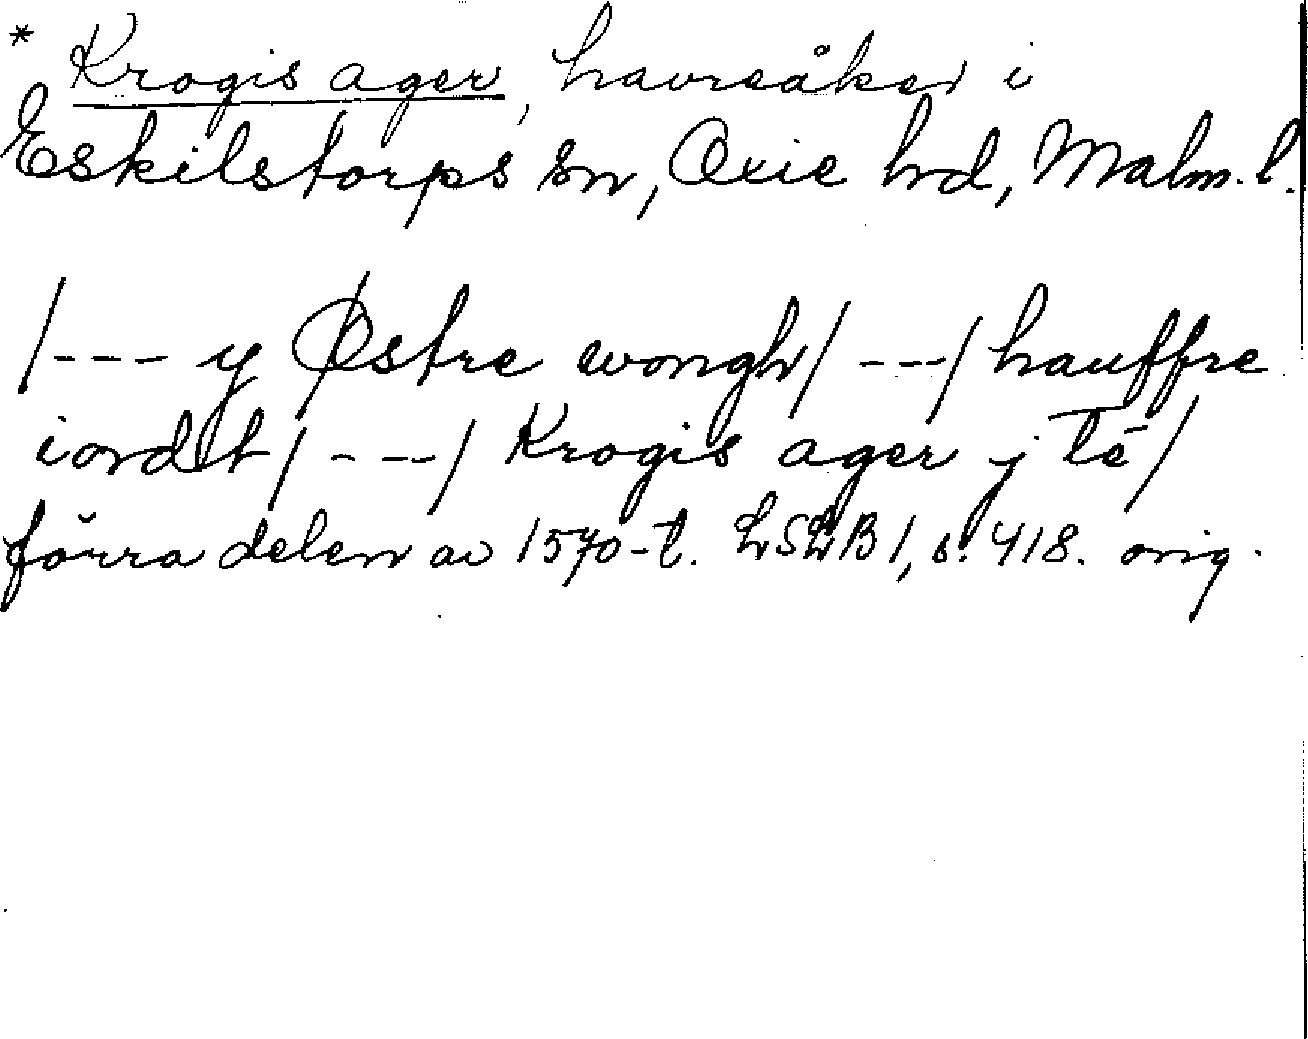 * Krogis ager, havreåker i
Eskilstorps sn, Oxie hd, Malm. l.
/--- y Østre wongh/ ---/ hauffre
iordt/ ---/ Krogis ager j te̅/
förra delen av 1570-t. LSLB 1, s. 418. orig.